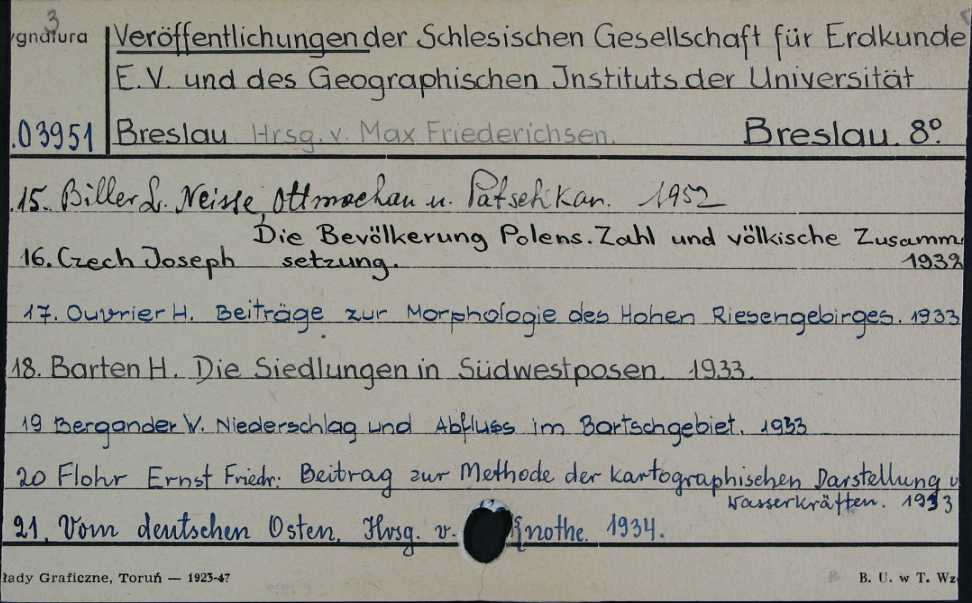 3
ygnatura
Veröffentlichungen der Schlesischen Gesellschaft für Erdkunde
E.V. und des Geographischen Instituts der Universität
.03951 Breslau Hrsg. v. Max Friederichsen. Breslau. 8º.
15. Biller L. Neisse, Ottmachau u. Patschkan. 1952
Die Bevölkerung Polens. Zahl und völkische Zusamm
16. Czech Joseph setzung. 1932
17. Ouvrier H. Beiträge zur Morphologie des Hohen Riesengebirges. 1933
18. Barten H. Die Siedlungen in Südwestposen. 1933.
19 Bergander V. Niederschlag und Abfluss im Bartschgebiet. 1933
20 Flohr Ernst Friedr: Beitrag zur Methode der kartographischen Darstellung v
Wasserkräften. 1933
21. Vom deutschen Osten. Hrsg. v. Knothe. 1934.
łady Graficzne, Toruń — 1923-47
B. U. w T. Wz